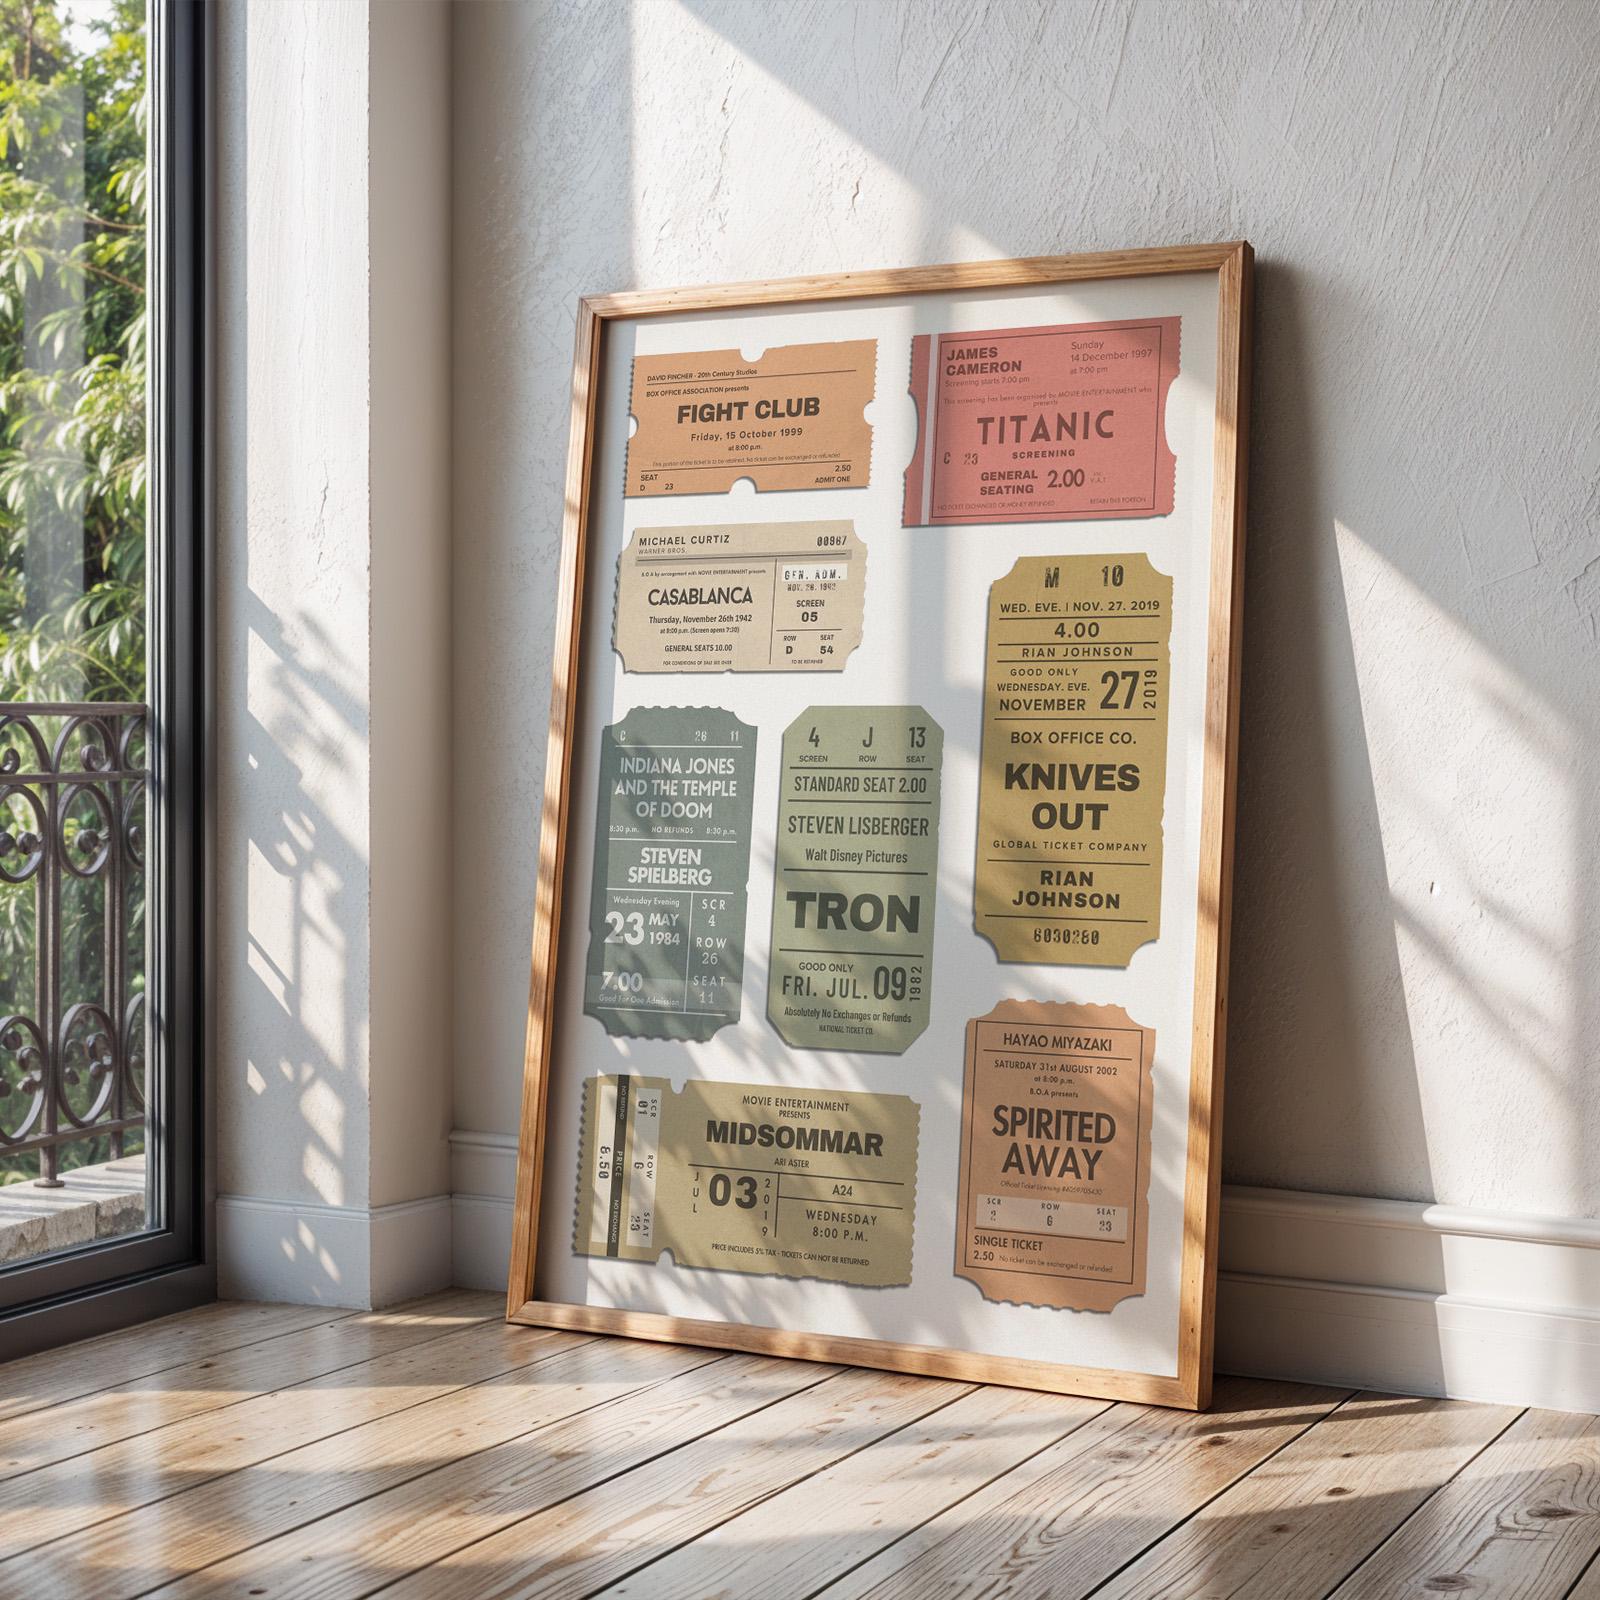 DAVID FINCHER - 20th Century Studios
BOX OFFICE ASSOCIATION presents
FIGHT CLUB
Friday, 15 October 1999
at 8:00 p.m.
This portion of the ticket is to be retained. No ticket can be exchanged or refunded
2.50
SEAT
D 23
ADMIT ONE
JAMES
CAMERON
Screening starts 7:00 pm
Sunday
14 December 1997
at 7:00 pm
This screening has been organised by MOVIE ENTERTAINMENT who
presents
TITANIC
SCREENING
C 23
GENERAL
SEATING
2.00
INC
V.A.T
NO TICKET EXCHANGED OR MONEY REFUNDED
RETAIN THIS PORTION
MICHAEL CURTIZ
WARNER BROS.
00967
B.O.A by arrangement with MOVIE ENTERTAINMENT presents
CASABLANCA
Thursday, November 26th 1942
at 8:00 p.m. (Screen opens 7:30)
GENERAL SEATS 10.00
FOR CONDITIONS OF SALE SEE OVER
GEN. ADM.
NOV. 26. 1942
SCREEN
05
ROW SEAT
D 54
TO BE RETAINED
M 10
WED. EVE. | NOV. 27. 2019
4.00
RIAN JOHNSON
GOOD ONLY
WEDNESDAY. EVE.
NOVEMBER
27
2019
BOX OFFICE CO.
KNIVES
OUT
GLOBAL TICKET COMPANY
RIAN
JOHNSON
6030280
C 26 11
INDIANA JONES
AND THE TEMPLE
OF DOOM
8:30 p.m. NO REFUNDS 8:30 p.m.
STEVEN
SPIELBERG
Wednesday Evening
23 MAY
1984
7.00
Good For One Admission
SCR
4
ROW
26
SEAT
11
4 J 13
SCREEN ROW SEAT
STANDARD SEAT 2.00
STEVEN LISBERGER
Walt Disney Pictures
TRON
GOOD ONLY
FRI. JUL. 09
1982
Absolutely No Exchanges or Refunds
NATIONAL TICKET CO.
NO REFUND
PRICE
NO EXCHANGE
8.50
SCR
01
ROW
G
SEAT
23
MOVIE ENTERTAINMENT
PRESENTS
MIDSOMMAR
ARI ASTER
JUL
03
2019
A24
WEDNESDAY
8:00 P.M.
PRICE INCLUDES 5% TAX - TICKETS CAN NOT BE RETURNED
HAYAO MIYAZAKI
SATURDAY 31st AUGUST 2002
at 8:00 p.m.
B.O.A presents
SPIRITED
AWAY
Official Ticket Licensing #6059705430
SCR ROW SEAT
2 G 23
SINGLE TICKET
2.50 No ticket can be exchanged or refunded